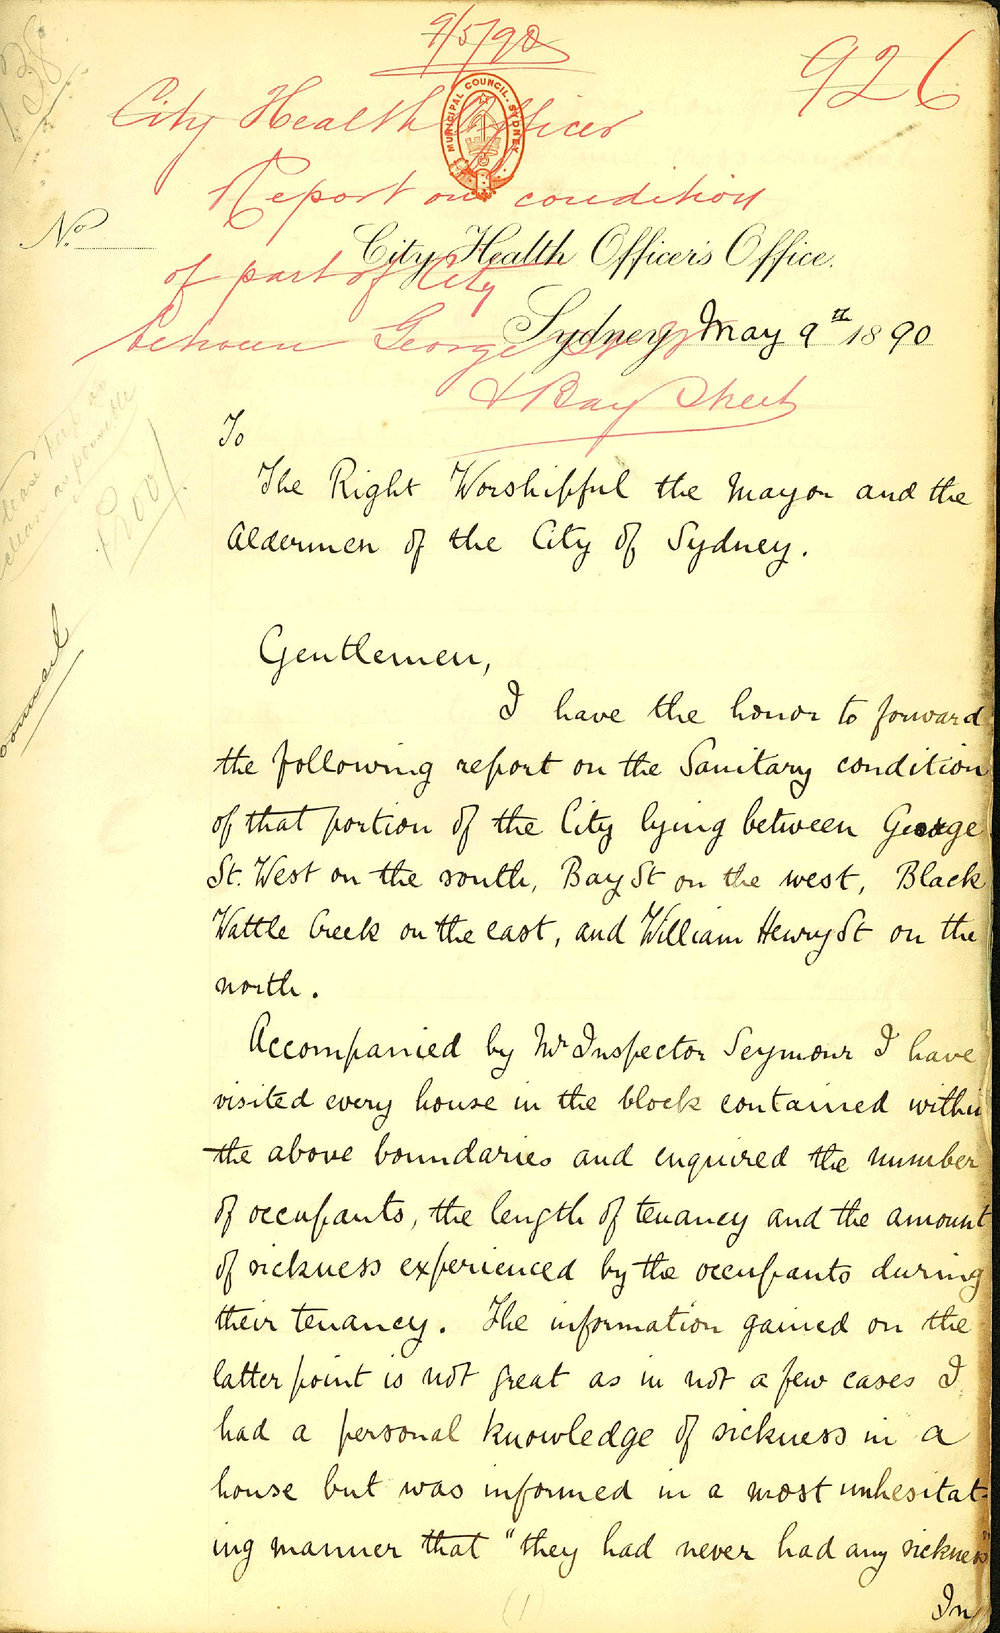 9/5/90
926
City Health Officer
MUNICIPAL COUNCIL. SYDNEY.
Report on condition
No.
City Health Officer's Office.
of part of City
between George St
Sydney May 9th 1890
& Bay Street
To
The Right Worshipful the Mayor and the
Aldermen of the City of Sydney.
Gentlemen,
I have the honor to forward
the following report on the Sanitary condition
of that portion of the City lying between George
St. West on the south, Bay St on the west, Black
Wattle Creek on the east, and William Henry St on the
north.
Accompanied by Mr Inspector Seymour I have
visited every house in the block contained within
the above boundaries and enquired the number
of occupants, the length of tenancy and the amount
of sickness experienced by the occupants during
their tenancy. The information gained on the
latter point is not great as in not a few cases I
had a personal knowledge of sickness in a
house but was informed in a most unhesitat-
ing manner that "they had never had any sickness"
In
(1)